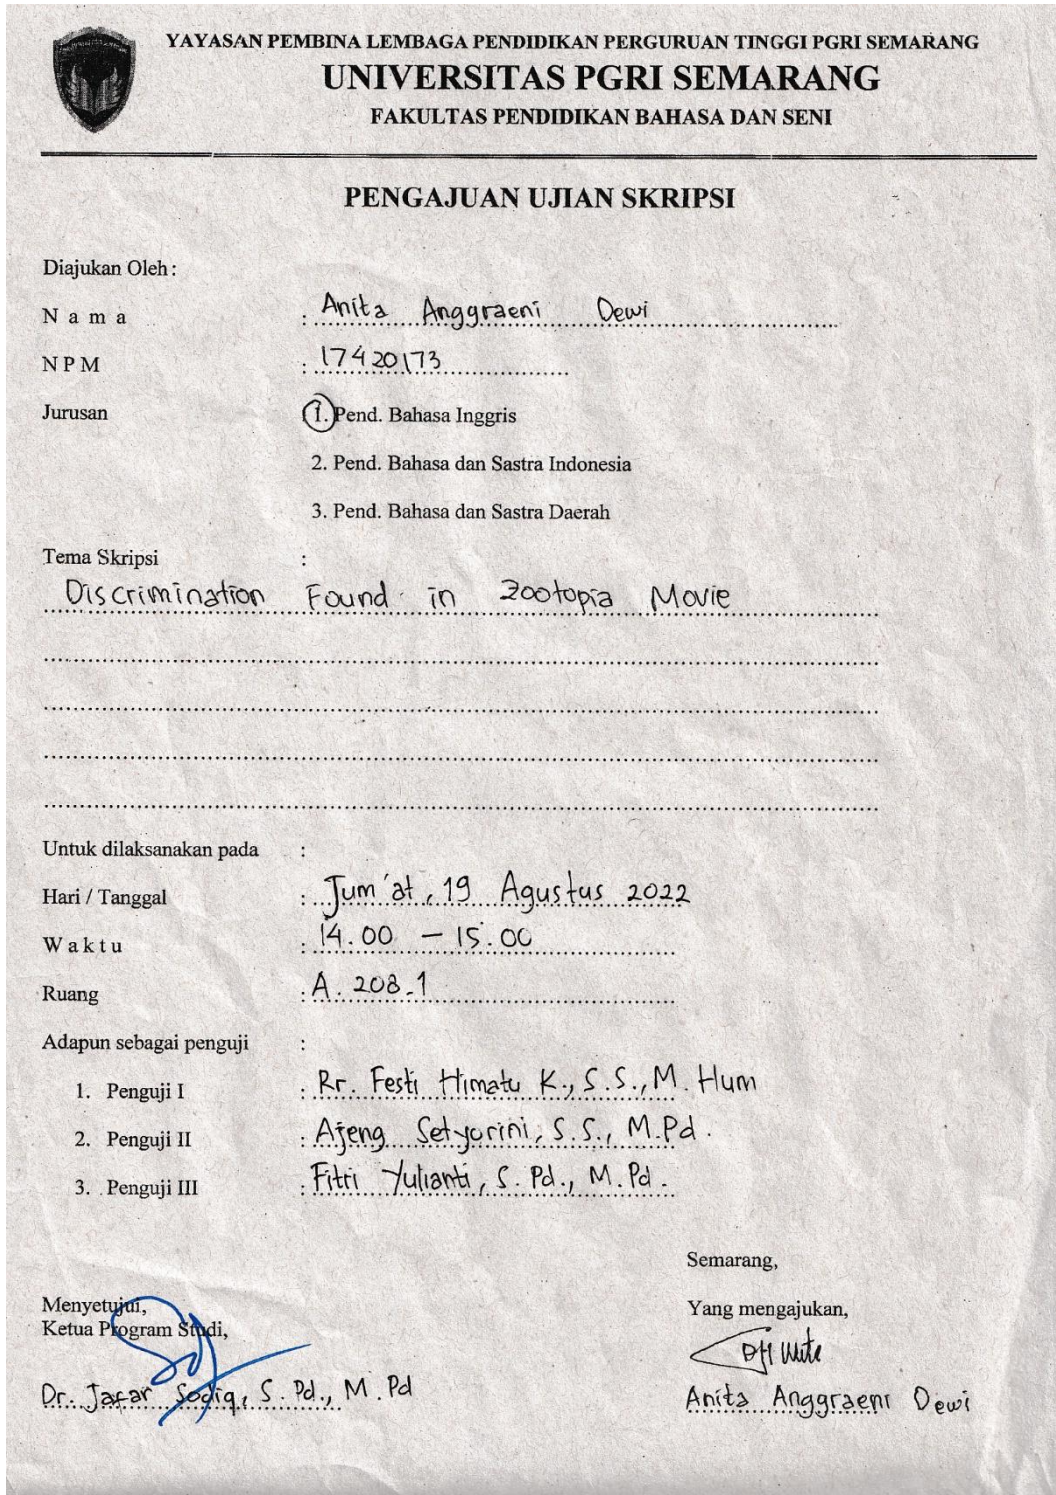 YAYASAN PEMBINA LEMBAGA PENDIDIKAN PERGURUAN TINGGI PGRI SEMARANG
UNIVERSITAS PGRI SEMARANG
FAKULTAS PENDIDIKAN BAHASA DAN SENI
PENGAJUAN UJIAN SKRIPSI
Diajukan Oleh :
N a m a : Anita Anggraeni Dewi
N P M : 17420173
Jurusan 1. Pend. Bahasa Inggris
2. Pend. Bahasa dan Sastra Indonesia
3. Pend. Bahasa dan Sastra Daerah
Tema Skripsi :
Discrimination Found in Zootopia Movie
Untuk dilaksanakan pada :
Hari / Tanggal : Jum'at, 19 Agustus 2022
W a k t u : 14.00 – 15.00
Ruang : A. 208.1
Adapun sebagai penguji :
1. Penguji I : Rr. Festi Himatu K., S.S., M. Hum
2. Penguji II : Ajeng Setyorini, S.S., M.Pd.
3. Penguji III : Fitri Yulianti, S. Pd., M. Pd.
Semarang,
Menyetujui,
Ketua Program Studi,
Yang mengajukan,
Dr. Jafar Sodiq, S. Pd., M. Pd
Anita Anggraeni Dewi